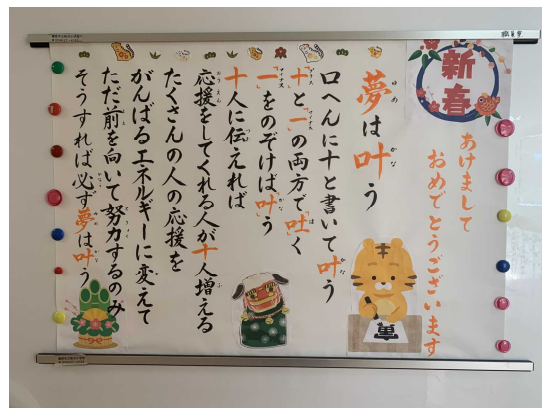 新春
あけまして
おめでとうございます
夢は叶う
口へんに十と書いて叶う
十と一の両方で「吐」く
「一」をのぞけば「叶」う
十人に伝えれば
応援をしてくれる人が十人増える
たくさんの人の応援を
がんばるエネルギーに変えて
ただ前を向いて努力するのみ
そうすれば必ず夢は叶う